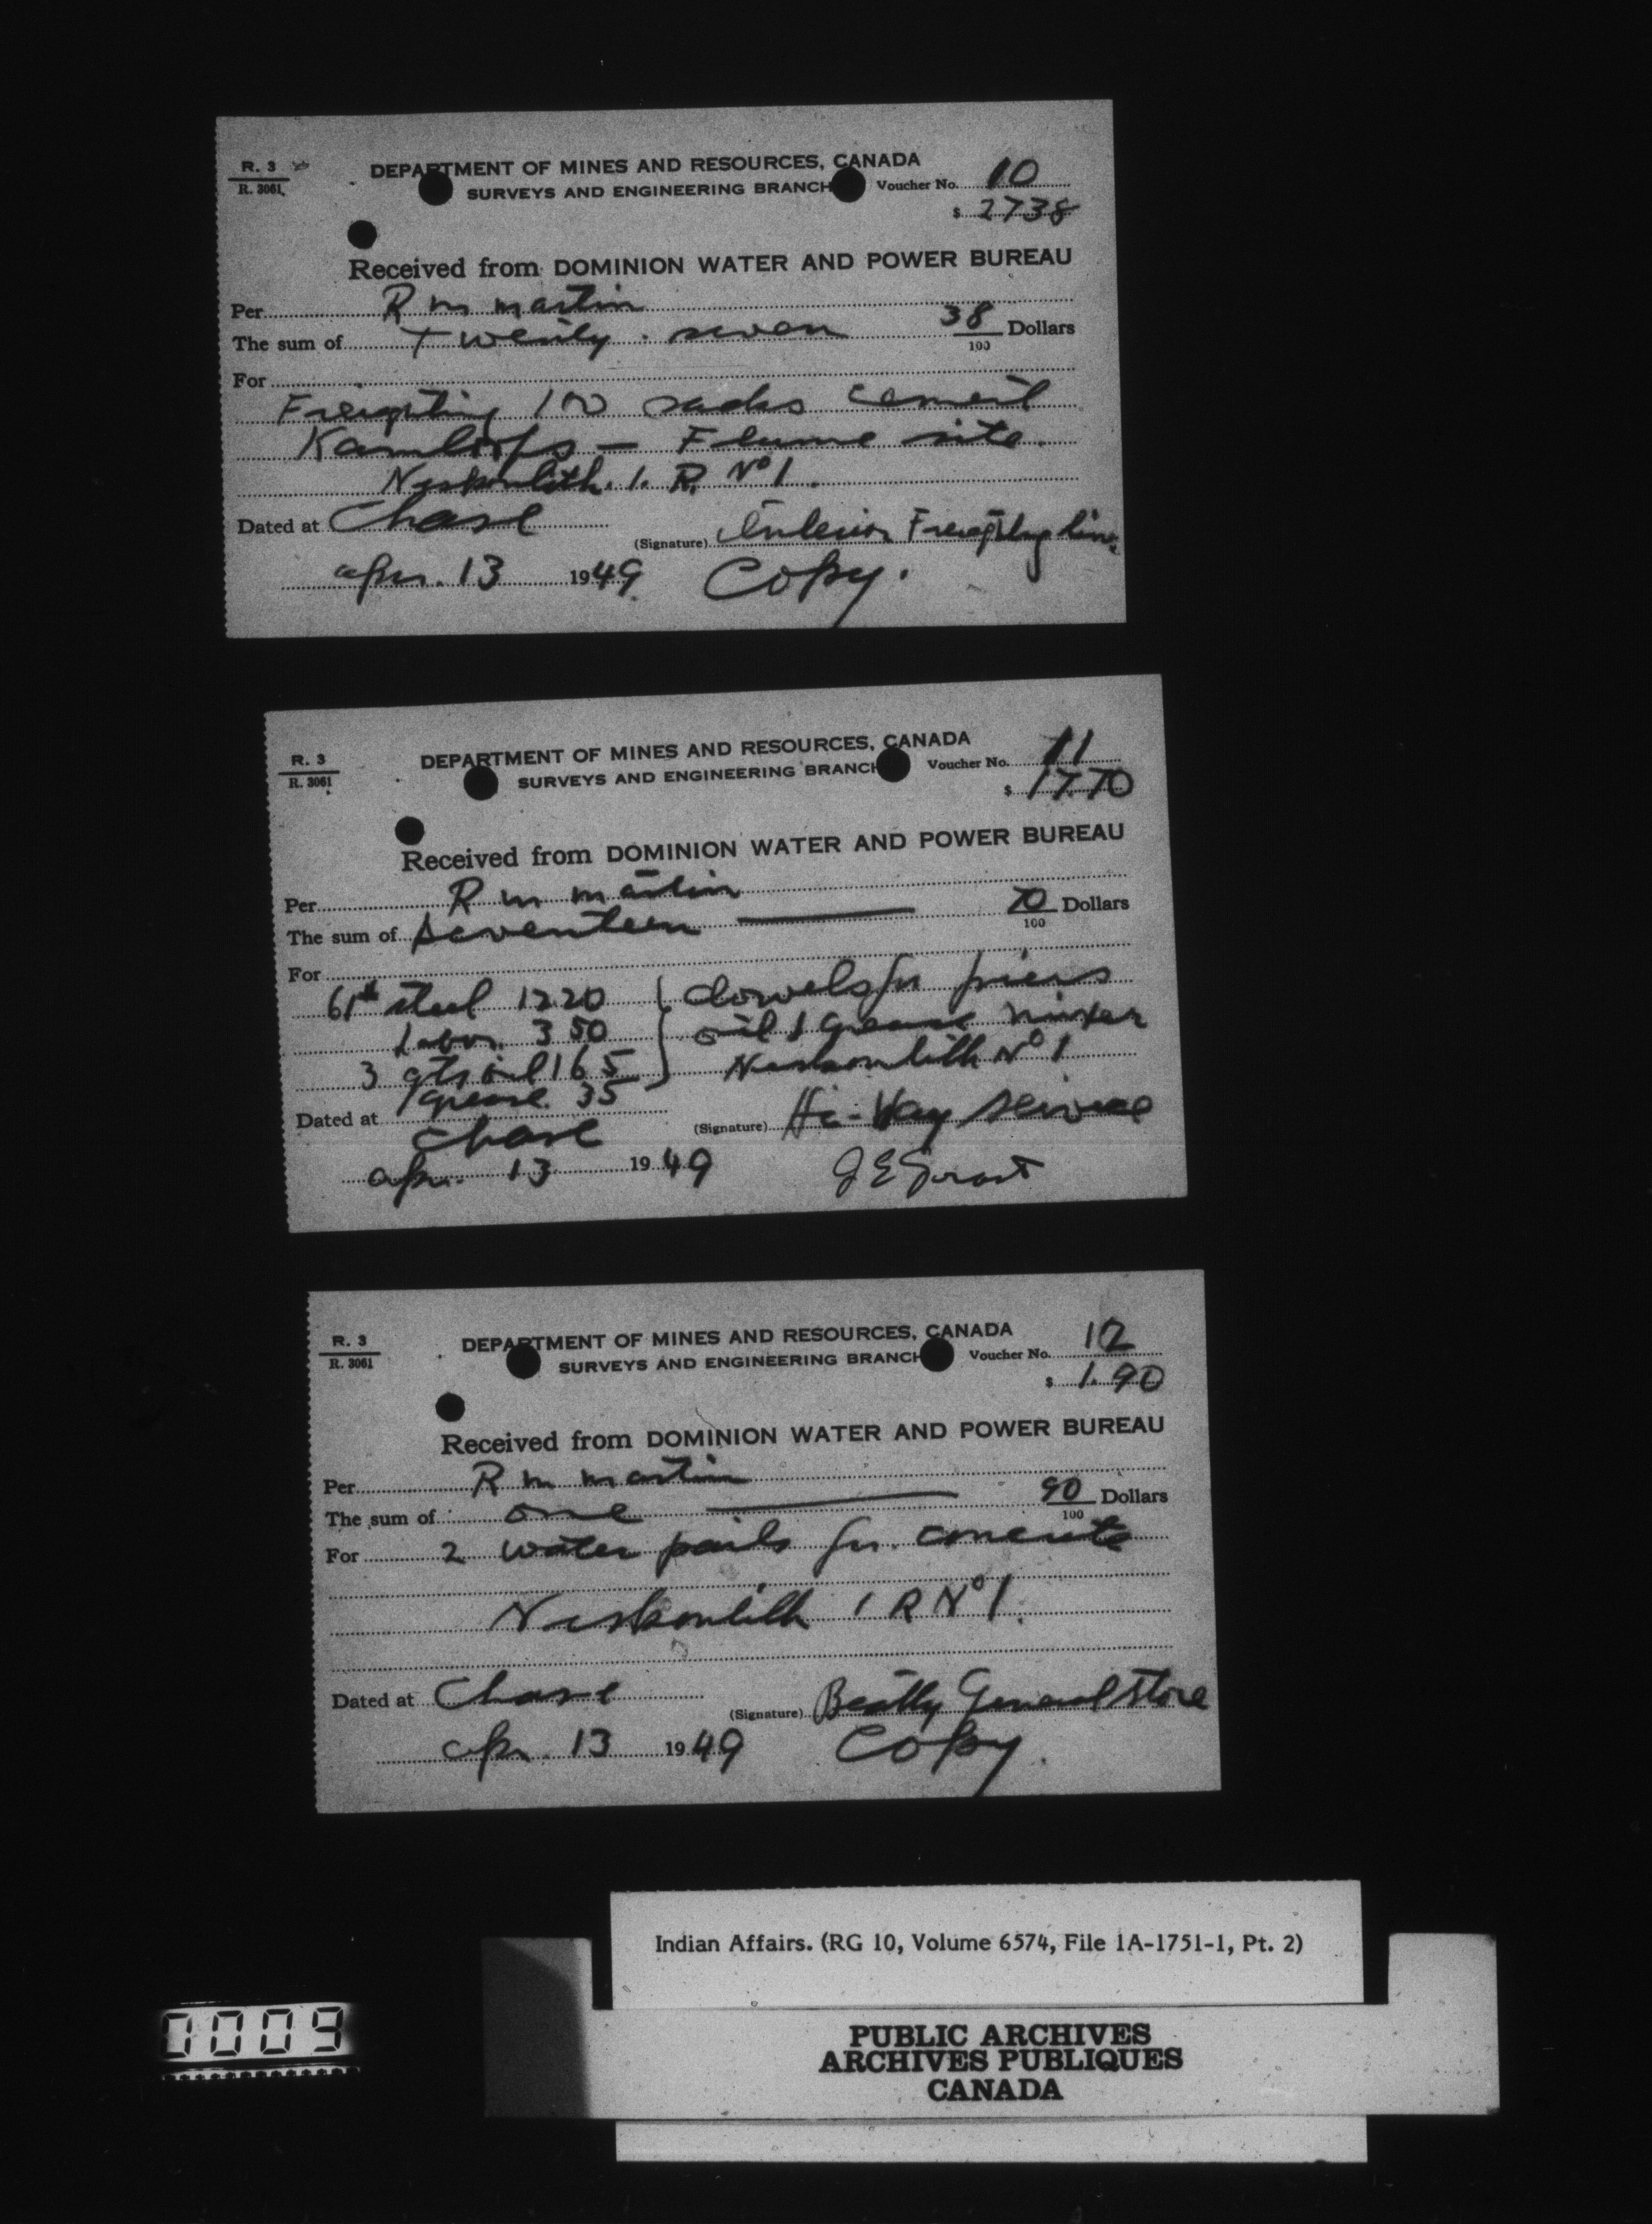 R. 3
R. 3061
DEPARTMENT OF MINES AND RESOURCES, CANADA
SURVEYS AND ENGINEERING BRANCH
Voucher No. 10
$ 27 38
Received from DOMINION WATER AND POWER BUREAU
Per R M Martin
The sum of Twenty seven 38/100 Dollars
For
Freighting 100 sacks cement
Kamloops — Flume site.
Neskonlith. I. R. No 1.
Dated at Chase
(Signature) Interior Freighting Lines
Apr. 13 1949
Copy.
R. 3
R. 3061
DEPARTMENT OF MINES AND RESOURCES, CANADA
SURVEYS AND ENGINEERING BRANCH
Voucher No. 11
$ 17.70
Received from DOMINION WATER AND POWER BUREAU
Per R M Martin
The sum of Seventeen — 70/100 Dollars
For
61# steel 12 20 dowels for piers
Labor 3 50 oil & grease mixer
3 qts oil 1 65 Neskonlith No 1
1 grease 35
Dated at Chase
(Signature) Hi-Way Service
Apr. 13 1949
J E Grant
R. 3
R. 3061
DEPARTMENT OF MINES AND RESOURCES, CANADA
SURVEYS AND ENGINEERING BRANCH
Voucher No. 12
$ 1.90
Received from DOMINION WATER AND POWER BUREAU
Per R M Martin
The sum of one — 90/100 Dollars
For 2 water pails for concrete
Neskonlith I R No 1.
Dated at Chase
(Signature) Beatty General Store
Apr. 13 1949
Copy.
Indian Affairs. (RG 10, Volume 6574, File 1A-1751-1, Pt. 2)
0009
PUBLIC ARCHIVES
ARCHIVES PUBLIQUES
CANADA